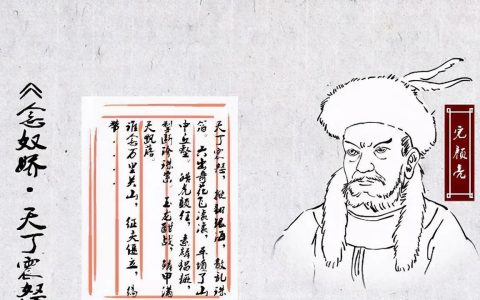 《念奴娇·天丁震怒
天丁震怒，掀翻银海，散乱珠
箔。六出奇花飞滚滚，平填了山
中丘壑。皓虎颠狂，素麟猖獗，
掣断珍珠索。玉龙酣战，鳞甲满
天飘落。
谁念万里关山，征夫僵立，缟
带...
完颜亮